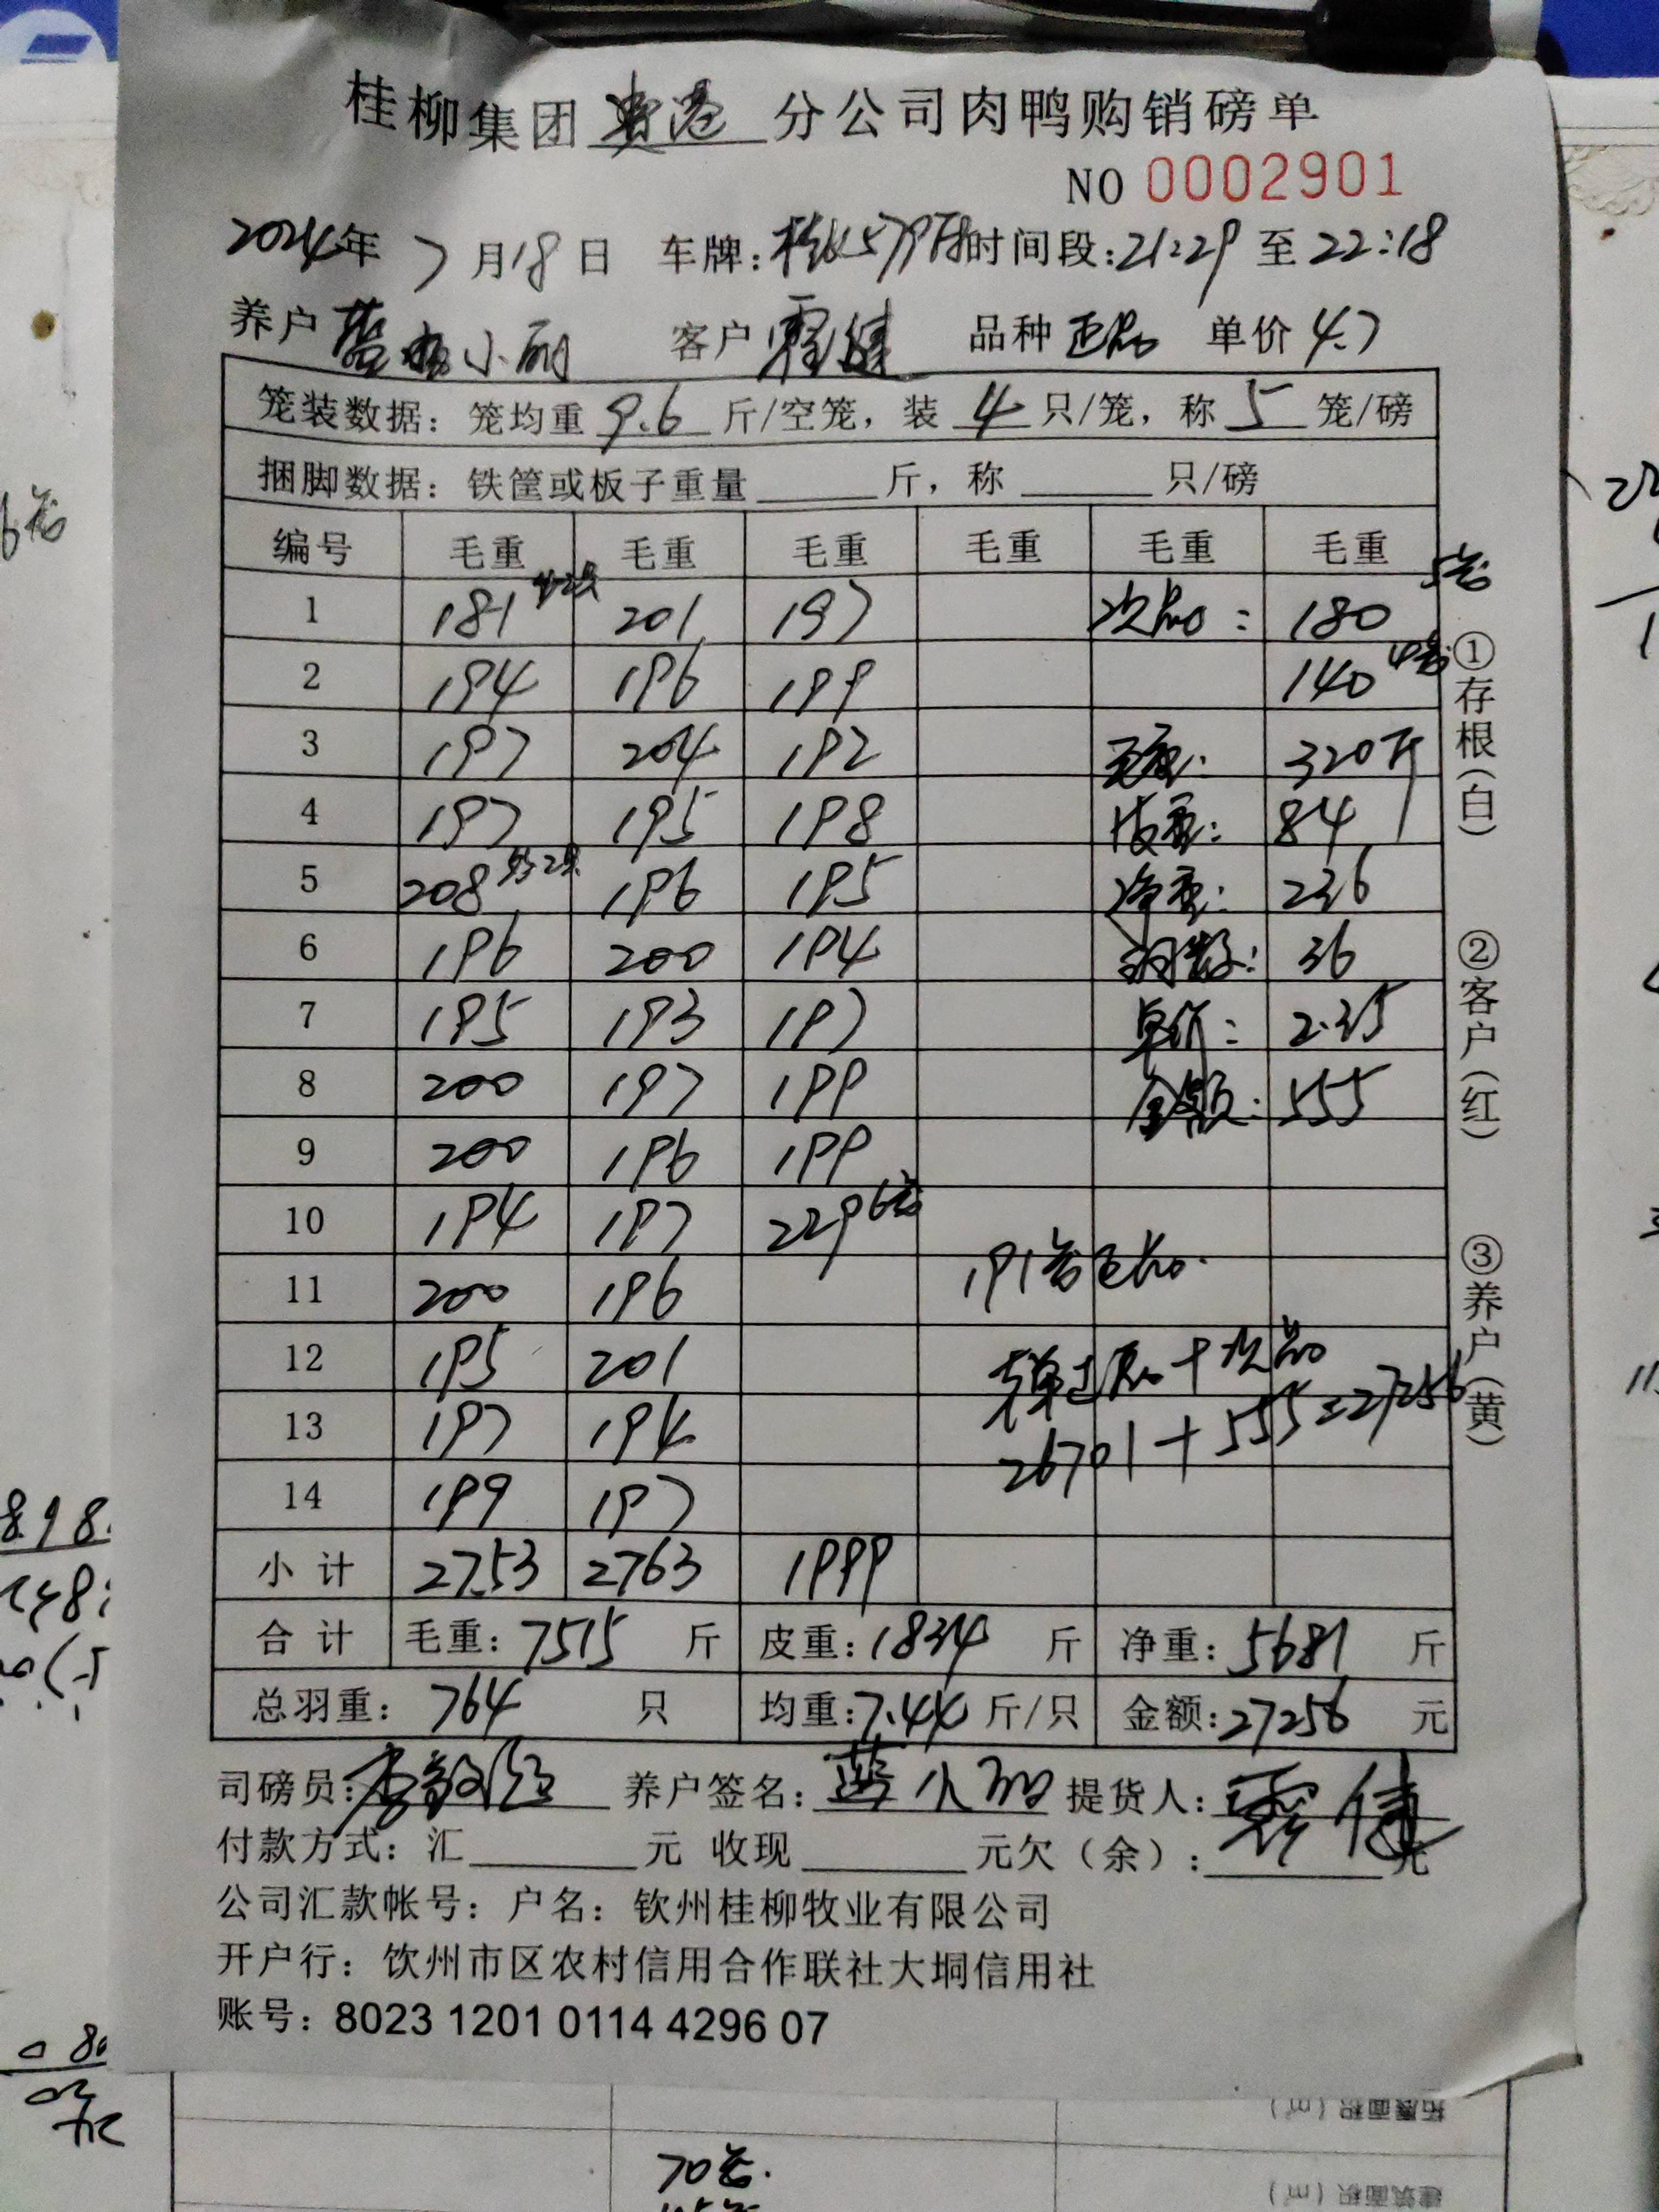 桂柳集团贵港分公司肉鸭购销磅单
NO 0002901
2024年 7月18日 车牌: 时间段:21:29 至 22:18
养户 蓝小丽 客户 霍健 品种 正品 单价 4.7
笼装数据: 笼均重 9.6 斤/空笼, 装 4 只/笼, 称 5 笼/磅
捆脚数据: 铁筐或板子重量 斤, 称 只/磅
编号 毛重 毛重 毛重 毛重 毛重 毛重
1 181 201 197 次品: 180 5笼
2 194 196 199 140 4笼
3 197 204 192 毛重: 320斤
4 197 195 198 皮重: 84
5 208 196 195 净重: 236
6 196 200 194 羽数: 36
7 195 193 197 单价: 2.35
8 200 197 199 金额: 555
9 200 196 199
10 194 197 229 6笼
11 200 196 191笼正品.
12 195 201 正品+次品
13 197 194 26701+555=27256
14 199 197
小计 2753 2763 1999
合计 毛重: 7515 斤 皮重: 1834 斤 净重: 5681 斤
总羽重: 764 只 均重: 7.44 斤/只 金额: 27256 元
司磅员: 养户签名: 蓝小丽 提货人: 霍健
付款方式: 汇 元 收现 元欠(余): 元
公司汇款帐号: 户名: 钦州桂柳牧业有限公司
开户行: 饮州市区农村信用合作联社大垌信用社
账号: 8023 1201 0114 4296 07
①存根(白)
②客户(红)
③养户(黄)
70笼.